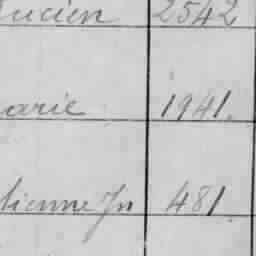 ucien 2542
arie 1941.
tienne Jn 481.